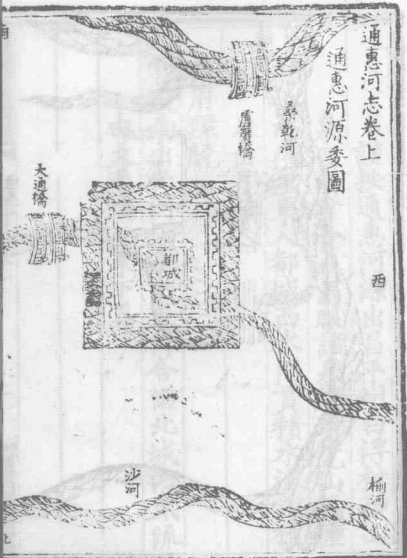 通惠河志卷上
通惠河源委圖
桑乾河
盧溝橋
西
大通橋
都城
沙河
榆河